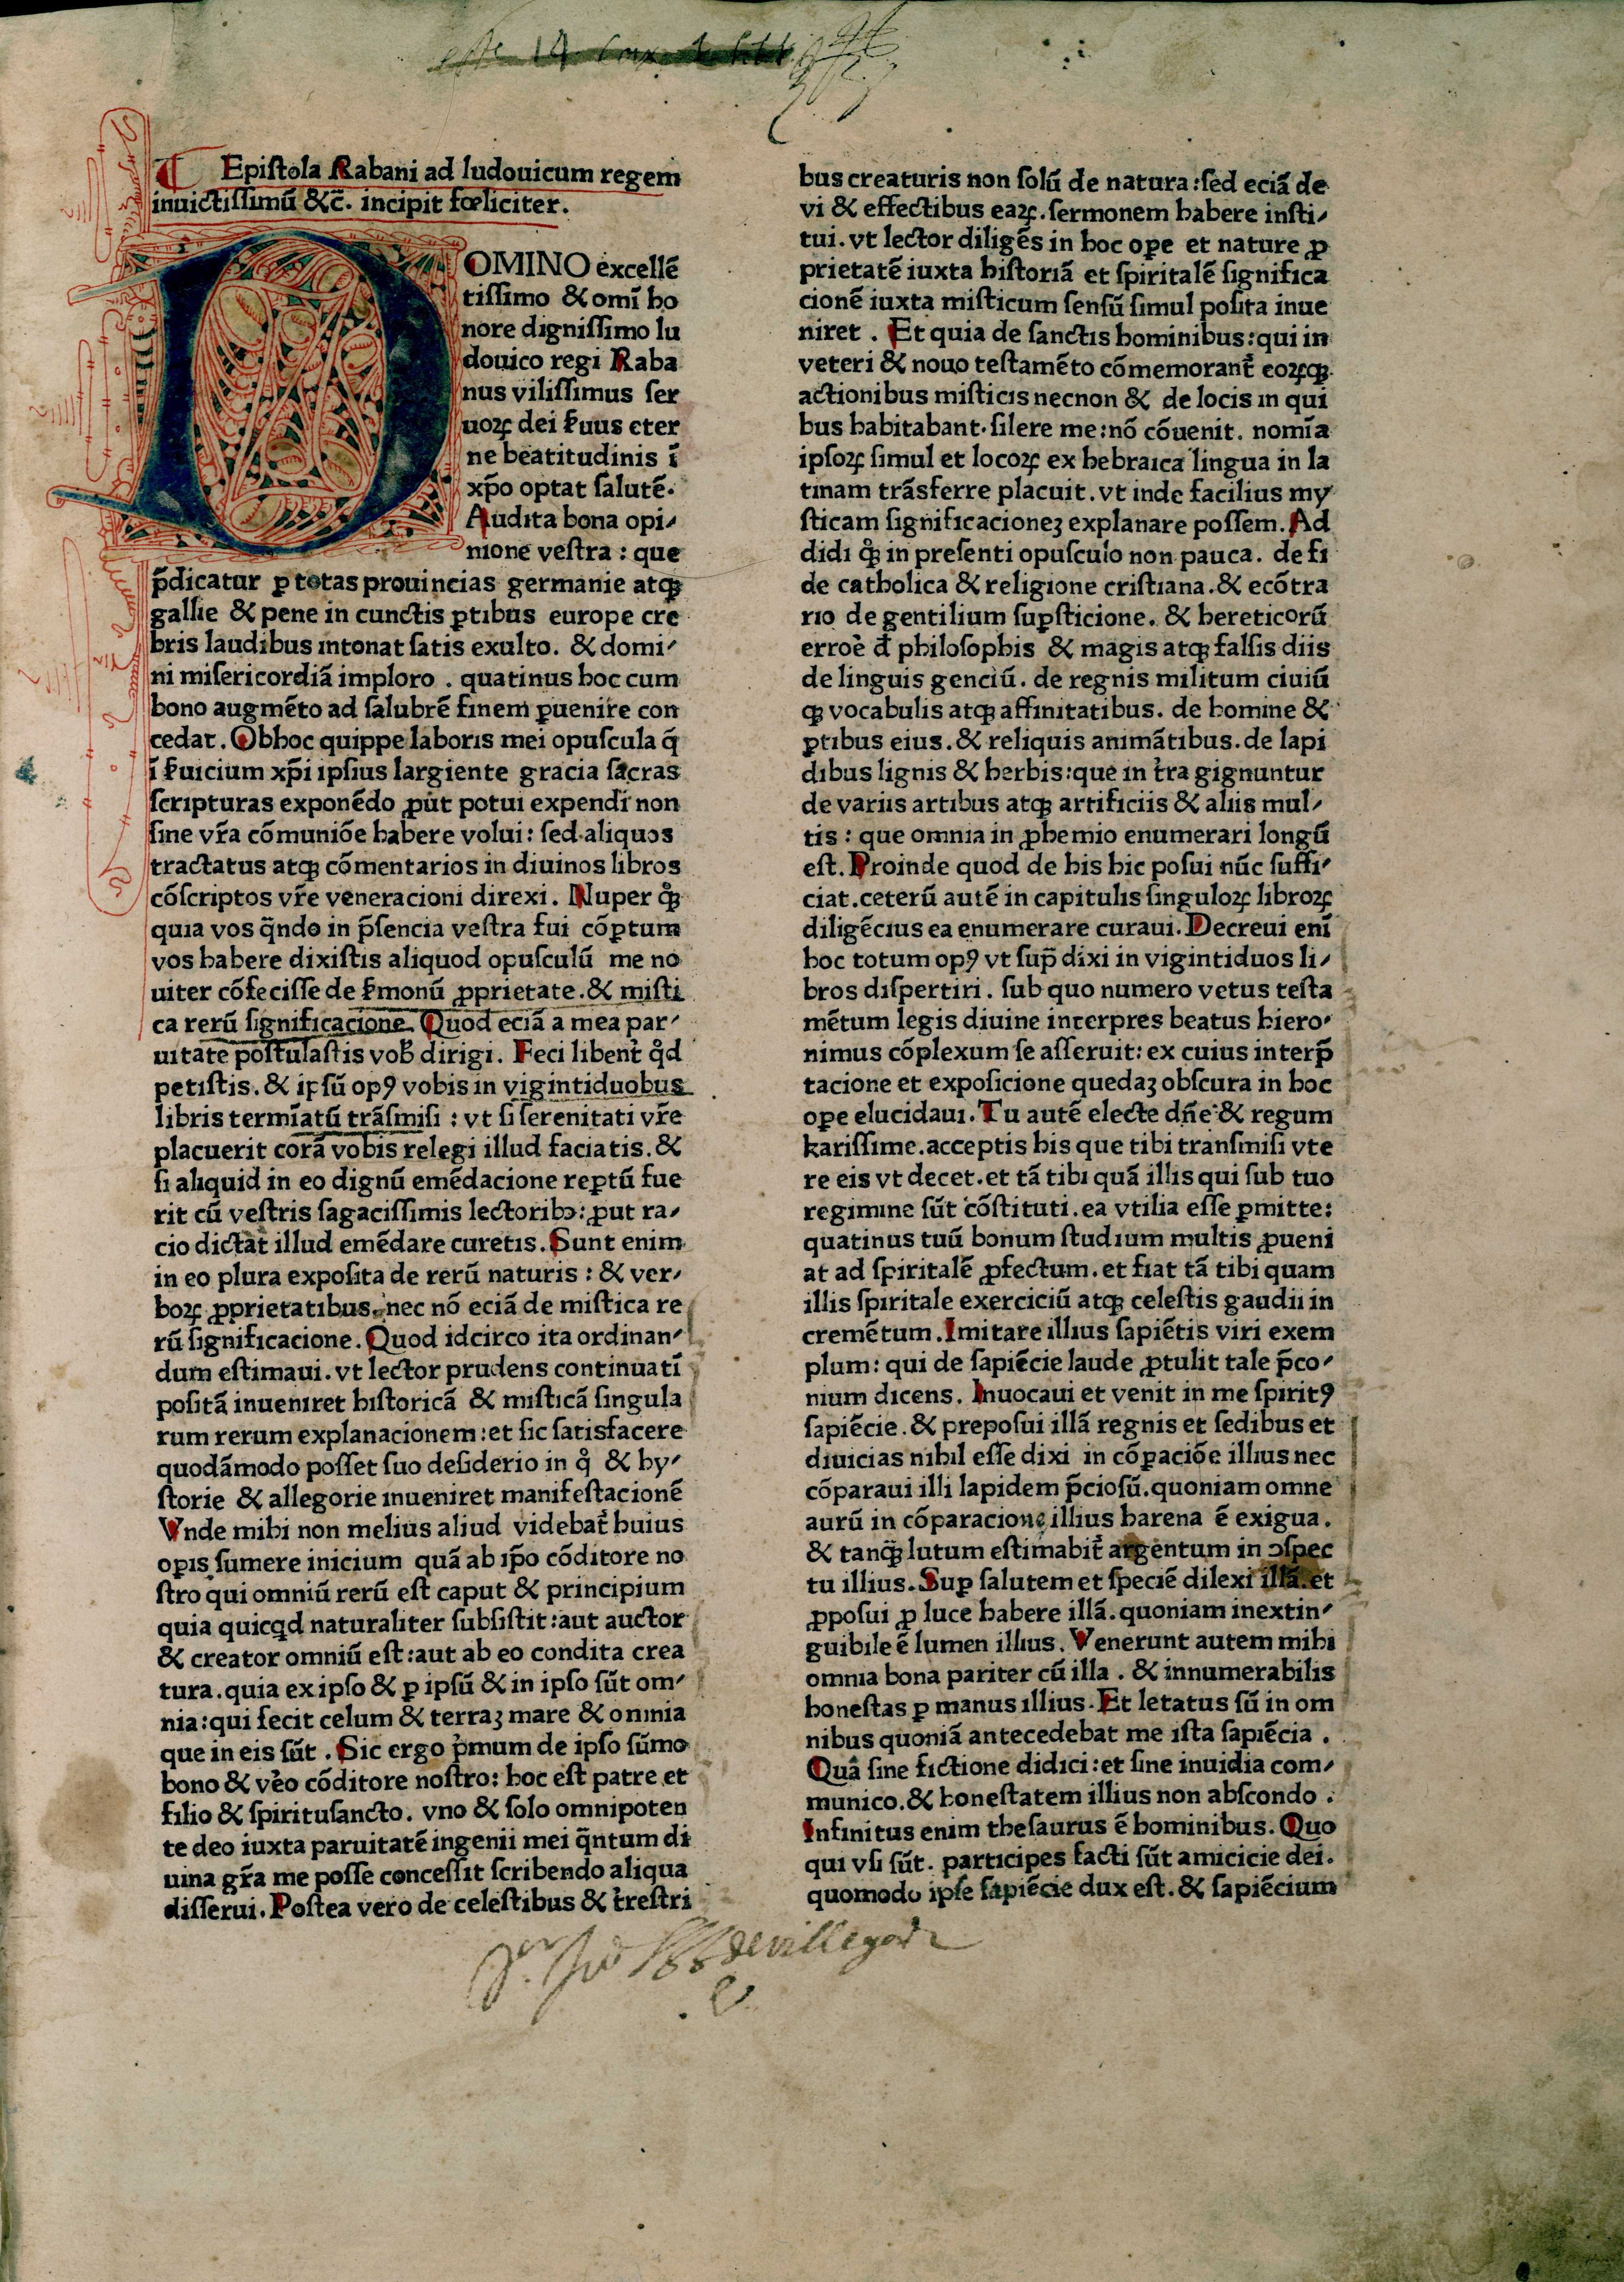 ¶ Epiſtola Rabani ad ludouicum regem
inuictiſſimū &c̄. incipit fœliciter.
DOMINO excellē
tiſſimo & om̄i ho
nore digniſſimo lu
douico regi Raba
nus viliſſimus ſer
uoꝝ dei ẜuus eter
ne beatitudinis ī
xp̄o optat ſalutē.
Audita bona opi⸗
nione veſtra : que
p̄dicatur ꝑ totas prouincias germanie atqꝫ
gallie & pene in cunctis ꝑtibus europe cre
bris laudibus intonat ſatis exulto. & domi⸗
ni miſericordiā imploro . quatinus hoc cum
bono augmēto ad ſalubrē finem ꝑuenire con
cedat. Obhoc quippe laboris mei opuſcula q̄
ī ẜuicium xp̄i ipſius largiente gracia ſacras
ſcripturas exponēdo ꝓut potui expendi non
ſine vr̄a cōmuniōe habere volui: ſed aliquos
tractatus atqꝫ cōmentarios in diuinos libros
cōſcriptos vr̄e veneracioni direxi. Nuper qͦꝫ
quia vos q̄ndo in p̄ſencia veſtra fui cōꝑtum
vos habere dixiſtis aliquod opuſculū me no
uiter cōfeciſſe de ẜmonū ꝓprietate. & miſti
ca rerū ſignificacione. Quod eciā a mea par⸗
uitate poſtulaſtis vob̄ dirigi. Feci libent̄ qͦd
petiſtis. & ipſū opꝰ vobis in vigintiduobus
libris termīatū trāſmiſi : vt ſi ſerenitati vr̄e
placuerit corā vobis relegi illud faciatis. &
ſi aliquid in eo dignū emēdacione reꝑtū fue
rit cū veſtris ſagaciſſimis lectoribꝫ: ꝓut ra⸗
cio dictat illud emēdare curetis. Sunt enim
in eo plura expoſita de rerū naturis : & ver⸗
boꝝ ꝓprietatibus. nec nō eciā de miſtica re
rū ſignificacione. Quod idcirco ita ordinan⸗
dum eſtimaui. vt lector prudens continuatī
poſitā inueniret hiſtoricā & miſticā ſingula
rum rerum explanacionem: et ſic ſatisfacere
quodāmodo poſſet ſuo deſiderio in qͦ & hy⸗
ſtorie & allegorie inueniret manifeſtacionē
Vnde mihi non melius aliud videbat̄ huius
oꝑis ſumere inicium quā ab ip̄o cōditore no
ſtro qui omniū rerū eſt caput & principium
quia quicqͥd naturaliter ſubſiſtit: aut auctor
& creator omniū eſt: aut ab eo condita crea
tura. quia ex ipſo & ꝑ ipſū & in ipſo ſūt om⸗
nia: qui fecit celum & terraꝫ mare & omnia
que in eis ſūt . Sic ergo pͥmum de ipſo ſūmo
bono & vēo cōditore noſtro: hoc eſt patre et
filio & ſpirituſancto. vno & ſolo omnipoten
te deo iuxta paruitatē ingenii mei q̄ntum di
uina gr̄a me poſſe conceſſit ſcribendo aliqua
diſſerui. Poſtea vero de celeſtibus & t̄reſtri
bus creaturis non ſolū de natura: ſed eciā de
vi & effectibus eaꝝ. ſermonem habere inſti⸗
tui. vt lector diligēs in hoc oꝑe et nature ꝓ
prietatē iuxta hiſtoriā et ſpiritalē ſignifica
cionē iuxta miſticum ſenſū ſimul poſita inue
niret . Et quia de ſanctis hominibus: qui in
veteri & nouo teſtamēto cōmemorant̄ eoꝝqꝫ
actionibus miſticis necnon & de locis in qui
bus habitabant. ſilere me: nō cōuenit. nomīa
ipſoꝝ ſimul et locoꝝ ex hebraica lingua in la
tinam trāſferre placuit. vt inde facilius my
ſticam ſignificacioneꝫ explanare poſſem. Ad
didi qͦꝫ in preſenti opuſculo non pauca. de fi
de catholica & religione criſtiana. & ecōtra
rio de gentilium ſuꝑſticione. & hereticorū
erroē đ philoſophis & magis atqꝫ falſis diis
de linguis genciū. de regnis militum ciuiū
qꝫ vocabulis atqꝫ affinitatibus. de homine &
ꝑtibus eius. & reliquis animātibus. de lapi
dibus lignis & herbis: que in t̄ra gignuntur
de variis artibus atqꝫ artificiis & aliis mul⸗
tis : que omnia in ꝓhemio enumerari longū
eſt. Proinde quod de his hic poſui nūc ſuffi⸗
ciat. ceterū autē in capitulis ſinguloꝝ libroꝝ
diligēcius ea enumerare curaui. Decreui enī
hoc totum opꝰ vt ſup̄ dixi in vigintiduos li⸗
bros diſpertiri. ſub quo numero vetus teſta
mētum legis diuine interpres beatus hiero⸗
nimus cōplexum ſe aſſeruit: ex cuius interp̄
tacione et expoſicione quedaꝫ obſcura in hoc
oꝑe elucidaui. Tu autē electe dn̄e & regum
kariſſime. acceptis his que tibi tranſmiſi vte
re eis vt decet. et tā tibi quā illis qui ſub tuo
regimine ſūt cōſtituti. ea vtilia eſſe ꝑmitte:
quatinus tuū bonum ſtudium multis ꝓueni
at ad ſpiritalē ꝓfectum. et fiat tā tibi quam
illis ſpiritale exerciciū atqꝫ celeſtis gaudii in
cremētum. Imitare illius ſapiētis viri exem
plum: qui de ſapiēcie laude ꝓtulit tale p̄co⸗
nium dicens. Inuocaui et venit in me ſpiritꝰ
ſapiēcie. & prepoſui illā regnis et ſedibus et
diuicias nihil eſſe dixi in cōꝑaciōe illius nec
cōparaui illi lapidem p̄cioſū. quoniam omne
aurū in cōparacione illius harena ē exigua.
& tanqꝫ̄ lutum eſtimabit̄ argentum in ꝯſpec
tu illius. Suꝑ ſalutem et ſpeciē dilexi illā. et
ꝓpoſui ꝓ luce habere illā. quoniam inextin⸗
guibile ē lumen illius. Venerunt autem mihi
omnia bona pariter cū illa . & innumerabilis
honeſtas ꝑ manus illius. Et letatus ſū in om
nibus quoniā antecedebat me iſta ſapiēcia .
Quā ſine fictione didici: et ſine inuidia com⸗
munico. & honeſtatem illius non abſcondo .
Infinitus enim theſaurus ē hominibus. Quo
qui vſi ſūt. participes facti ſūt amicicie dei.
quomodo ipſe ſapiēcie dux eſt. & ſapiēcium